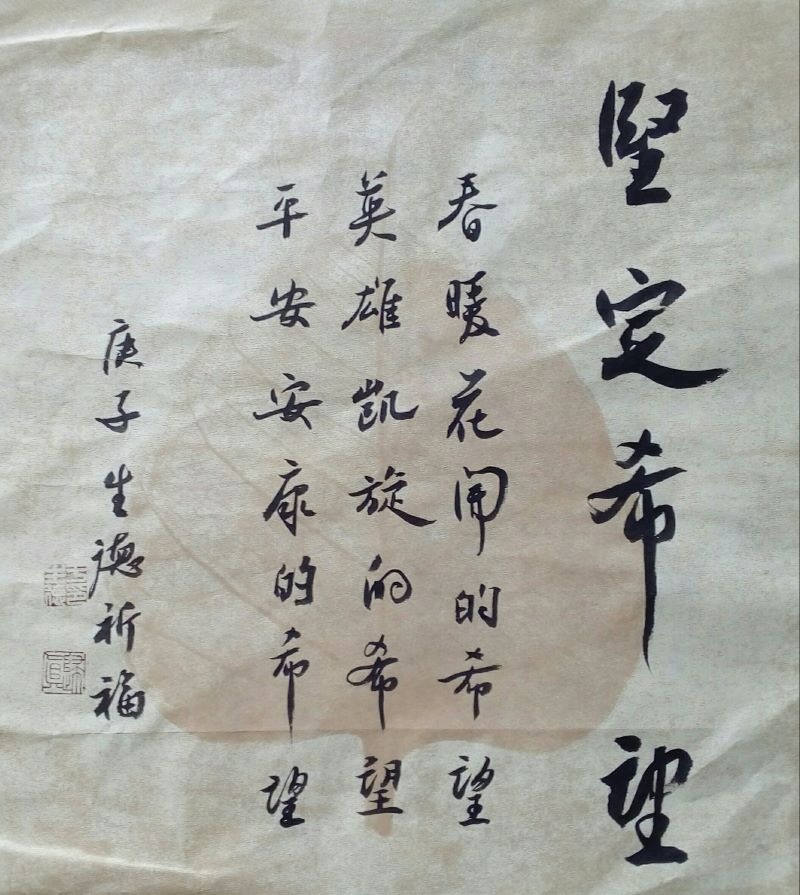 堅定希望
春暖花開的希望
英雄凱旋的希望
平安安康的希望
庚子生德祈福